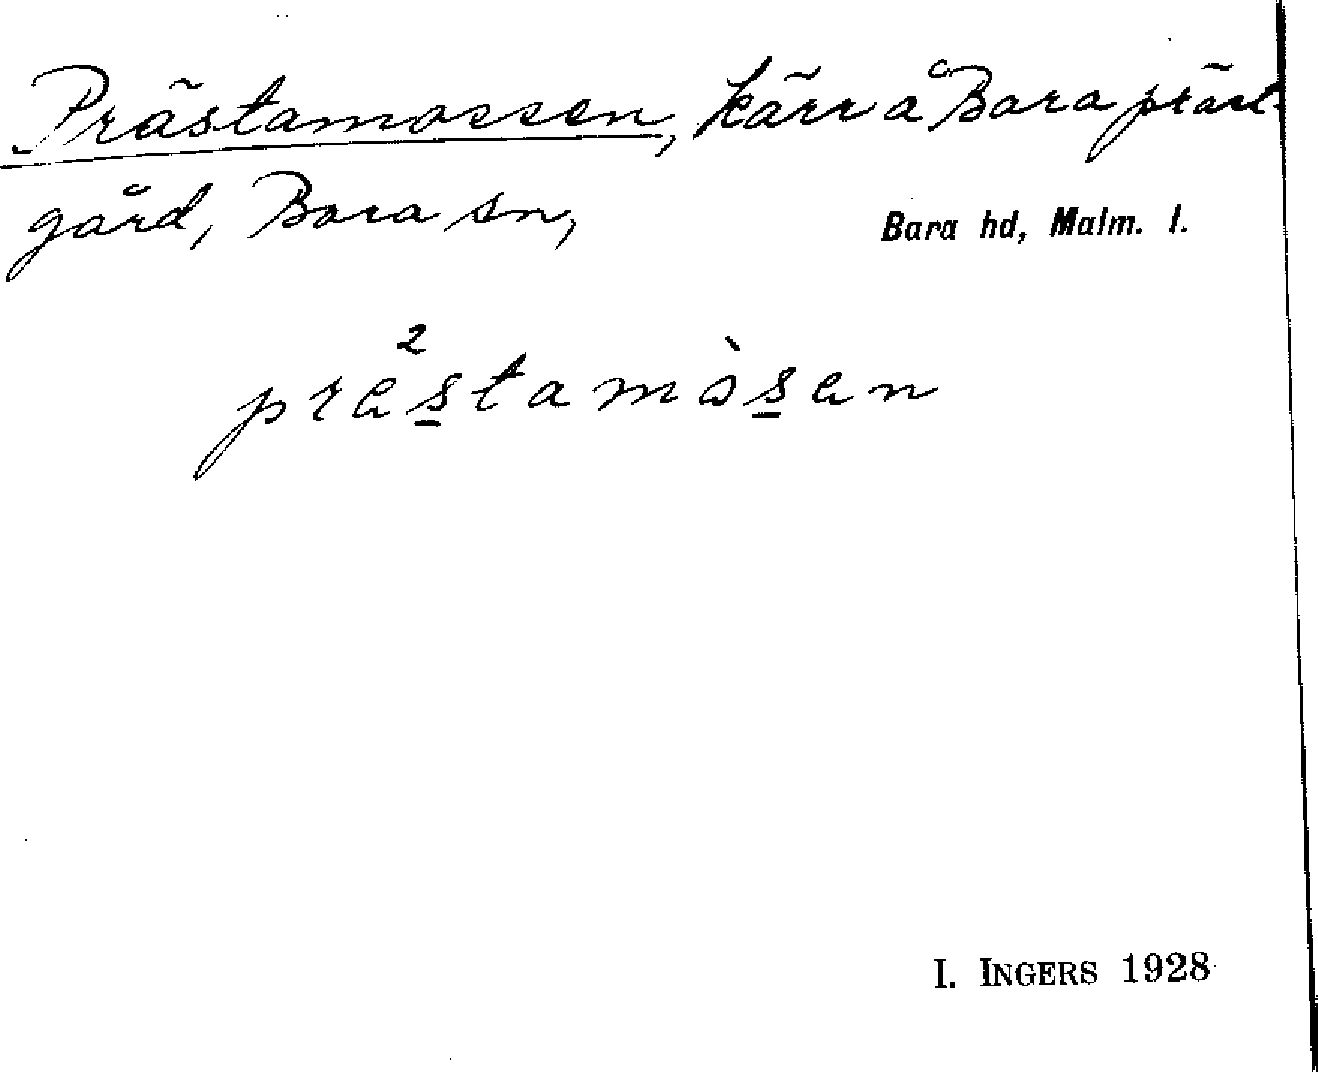 Prästamossen, kärr å Bara präst-
gård, Bara sn,
Bara hd, Malm. l.
prä²s̲tamòs̲an
I. INGERS 1928